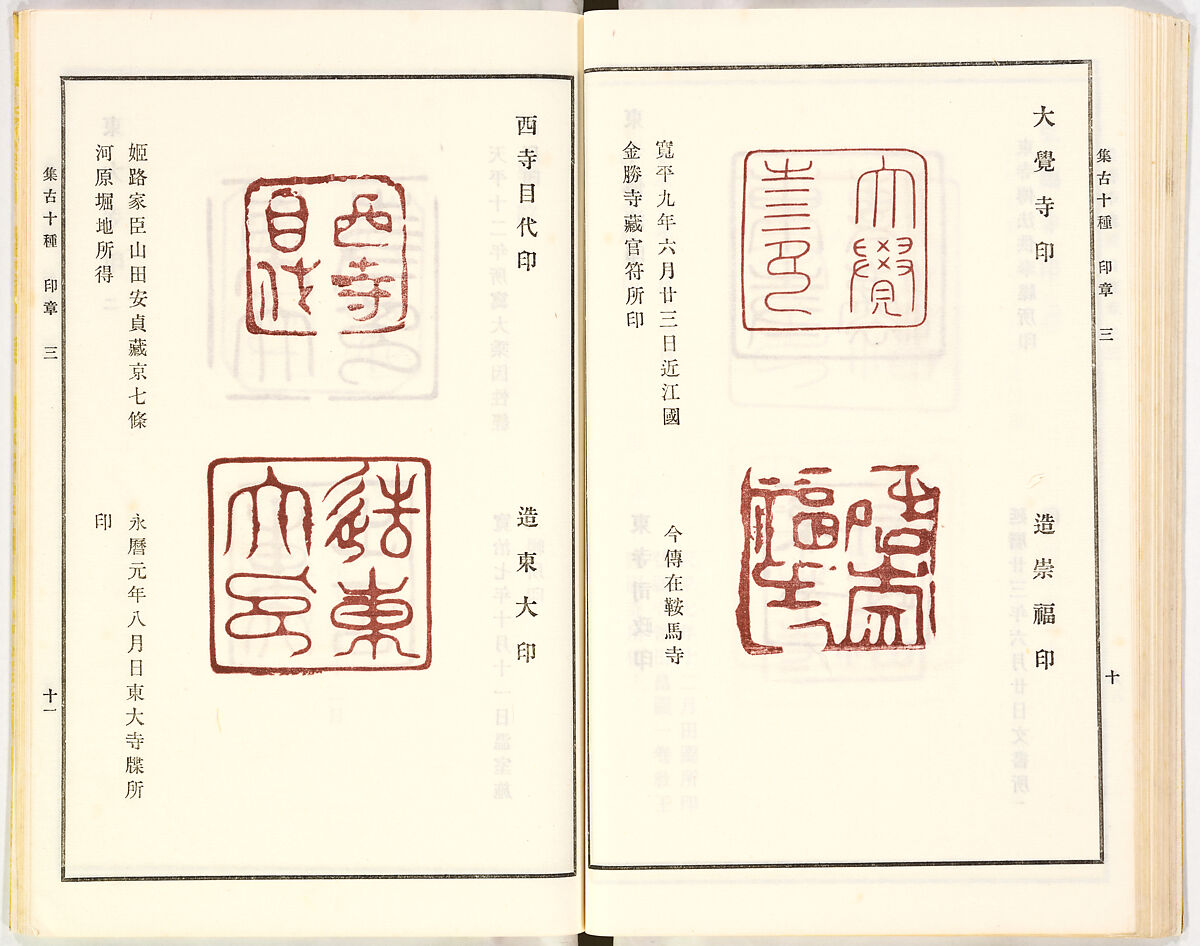 集古十種 印章 三
十
大覺寺印
寬平九年六月廿三日近江國
金勝寺藏官符所印
造崇福印
今傳在鞍馬寺
西寺目代印
西寺
目代
姬路家臣山田安貞藏京七條
河原堀地所得
造東大印
造東
大印
永曆元年八月日東大寺牒所
印
集古十種 印章 三
十一